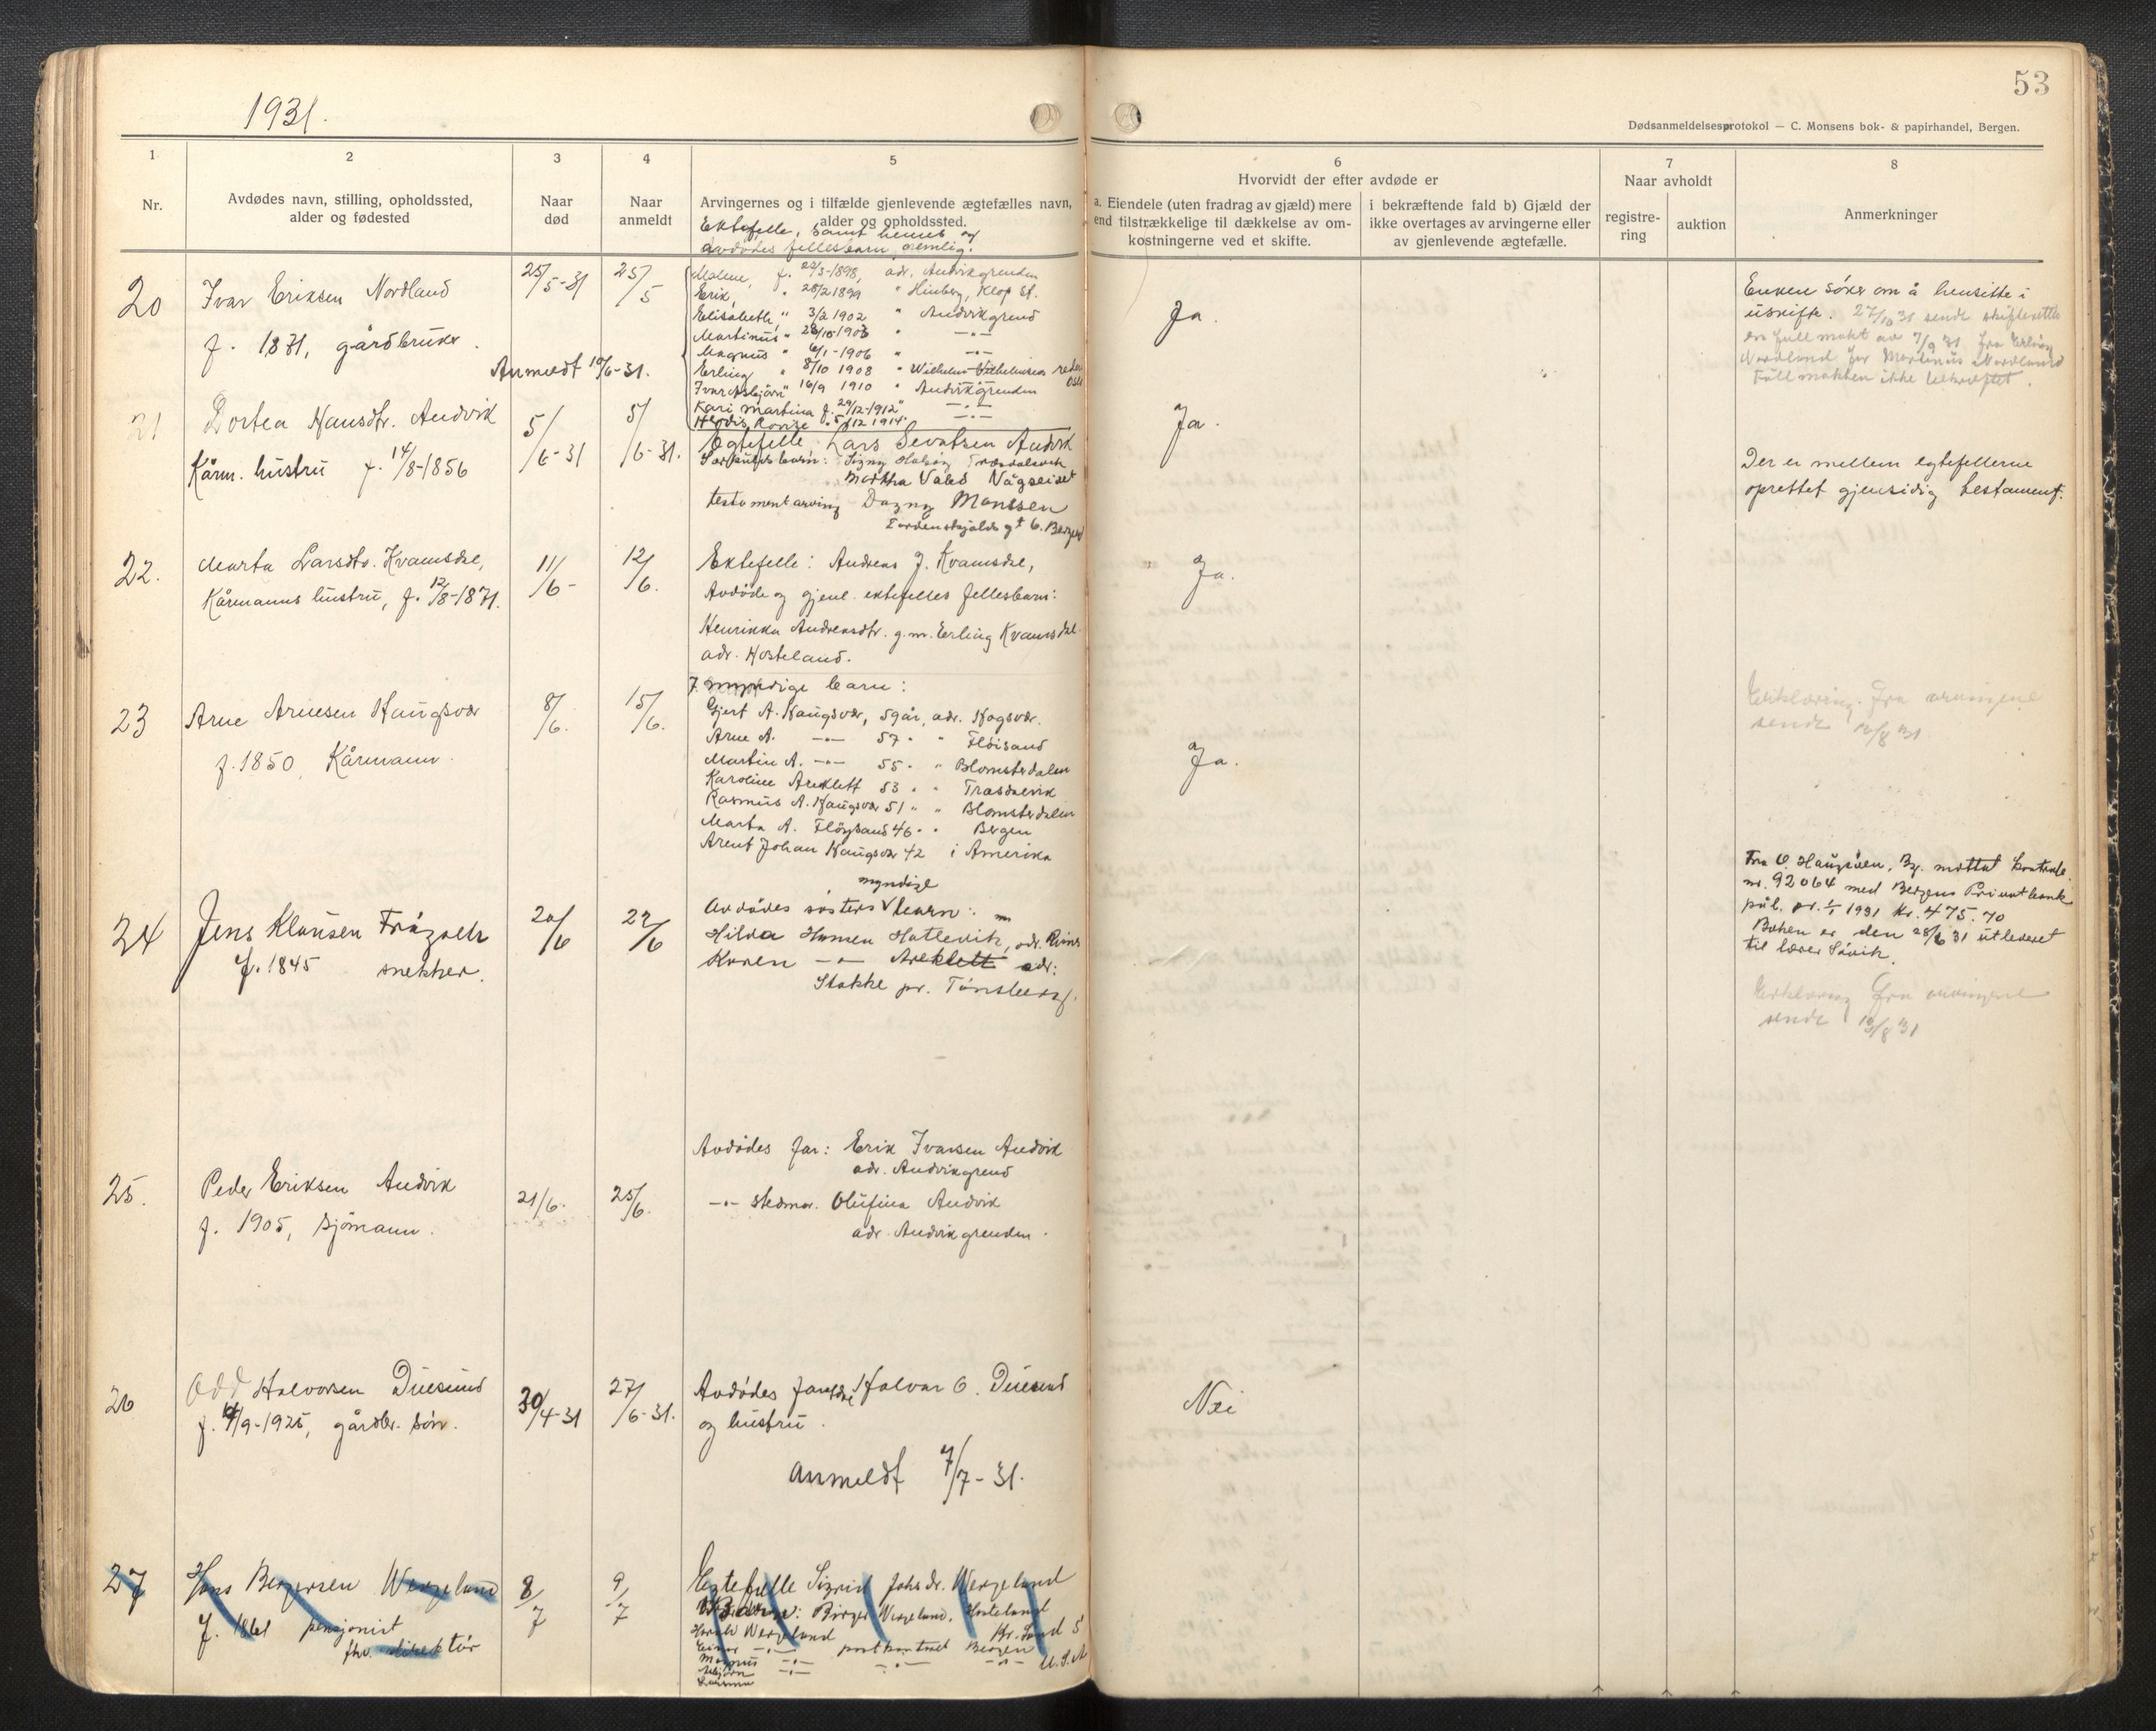 1931.
53
Dødsanmeldelsesprotokol — C. Monsens bok- & papirhandel, Bergen.
1
2
3
4
5
6
7
8
Nr.
Avdødes navn, stilling, opholdssted,
alder og fødested
Naar
død
Naar
anmeldt
Arvingernes og i tilfælde gjenlevende ægtefælles navn,
alder og opholdssted.
Hvorvidt der efter avdøde er
a. Eiendele (uten fradrag av gjæld) mere
end tilstrækkelige til dækkelse av om-
kostningerne ved et skifte.
i bekræftende fald b) Gjæld der
ikke overtages av arvingerne eller
av gjenlevende ægtefælle.
Naar avholdt
registre-
ring
auktion
Anmerkninger
20
Ivar Eriksen Nordland
f. 1871, gårdbruker.
25/5-31
25/5
Anmeldt 10/6-31.
Ektefelle, samt hennes og
avdødes fellesbarn, nemlig:
Malene, f. 22/3-1898, adr. Andvikgrenden
Erik, " 28/2 1899 " Hinberg, Klop st.
Elisabeth, " 3/2 1902 " Andvikgrend
Martinus " 1903 " —"—
Magnus " 6/1-1906 " —"—
Erling " 8/10 1908 " Wilhelm Wilhelmsen rederi Oslo
Ivar Asbjörn " 16/9 1910 " Andvikgrenden
Kari Martina f. 29/12-1912 " —"—
5/12 1914 —"—
Ja.
Enken söker om å hensitte i
uskifte. 27/10 31 sendt skifteretten
en fullmakt av 7/9 31 fra Erling
Nordland for Martinus Nordland
Fullmakten ikke bekreftet.
21
Dortea Hansdtr. Andvik
Kårm. hustru f. 14/8-1856
5/6-31
5/6-31.
Egtefelle Lars Sevatsen Andvik
Særkulsbarn: Signy
Martha Valed Vågseidet
testamentarving Dagny Monssen
Tordenskjolds gt 6. Bergen
Ja.
Der er mellem egtefellerne
oprettet gjensidig testament.
22.
Marta Larsdtr. Kvamsdal,
Kårmanns hustru, f. 12/8-1871.
11/6-
12/6.
Ektefelle: Andreas J. Kvamsdal,
Avdöde og gjenl. ektefelles fellesbarn:
Henrikka Andreasdtr. g.m. Erling Kvamsdal
adr. Hosteland.
Ja.
23
Arne Arnesen Haugsvær
f. 1850 Kårmann.
8/6.
15/6.
7 myndige barn:
Gjert A. Haugsvær, 59 år, adr. Hogsvær.
Arne A. —"— 57 " " Flöisand
Martin A. —"— 55 " " Blomsterdalen
Karoline Areklett 53 " " Trædalevik
Rasmus A. Haugsvær 51 " " Blomsterdalen
Marta A. Flöysand 46 " " Bergen
Arent Johan Haugsvær 42 i Amerika
Ja.
Erklæring fra arvingene
sendt 12/8 31
24
Jens Klausen
f. 1845 snekker.
20/6
22/6
myndige
Avdödes søsters barn:
Hilda Hansen Hatlevik, adr.
Karen —"— Areklett adr:
Stokke pr. Tönsberg.
Fra O. Haugsöen, Bg. mottat kontrabok
nr. 92064 med Bergens Privatbank
pål. pr. 1/1 1931 kr. 475.70
Boken er den 28/6 31 utleveret
til lærer Såvik.
Erklæring fra arvingene
sendt 12/8 31
25.
Peder Eriksen Andvik
f. 1905, sjömann.
21/6.
25/6.
Avdödes far: Erik Ivarsen Andvik
adr. Andvikgrend
—"— stedmor. Olufina Andvik
adr. Andvikgrenden.
26
Odd Halvorsen Duesund
/9-1925, gårdbr. sön.
30/4-31
27/6-31.
Avdödes foreldre Halvor O. Duesund
og hustru.
Anmeldt 7/7-31.
Nei
27
Hans Bergersen Wergeland
f. 1861 pensjonist
fhv. direktör
8/7
9/7
Egtefelle Sigrid Johs dr. Wergeland
Barn: Birger Wergeland, Hosteland
Harald Wergeland Kr. Sand S
Einar —"— postkontoret Bergen
Magnus —"— —"— —"— U.S.A
Asbjörn —"—